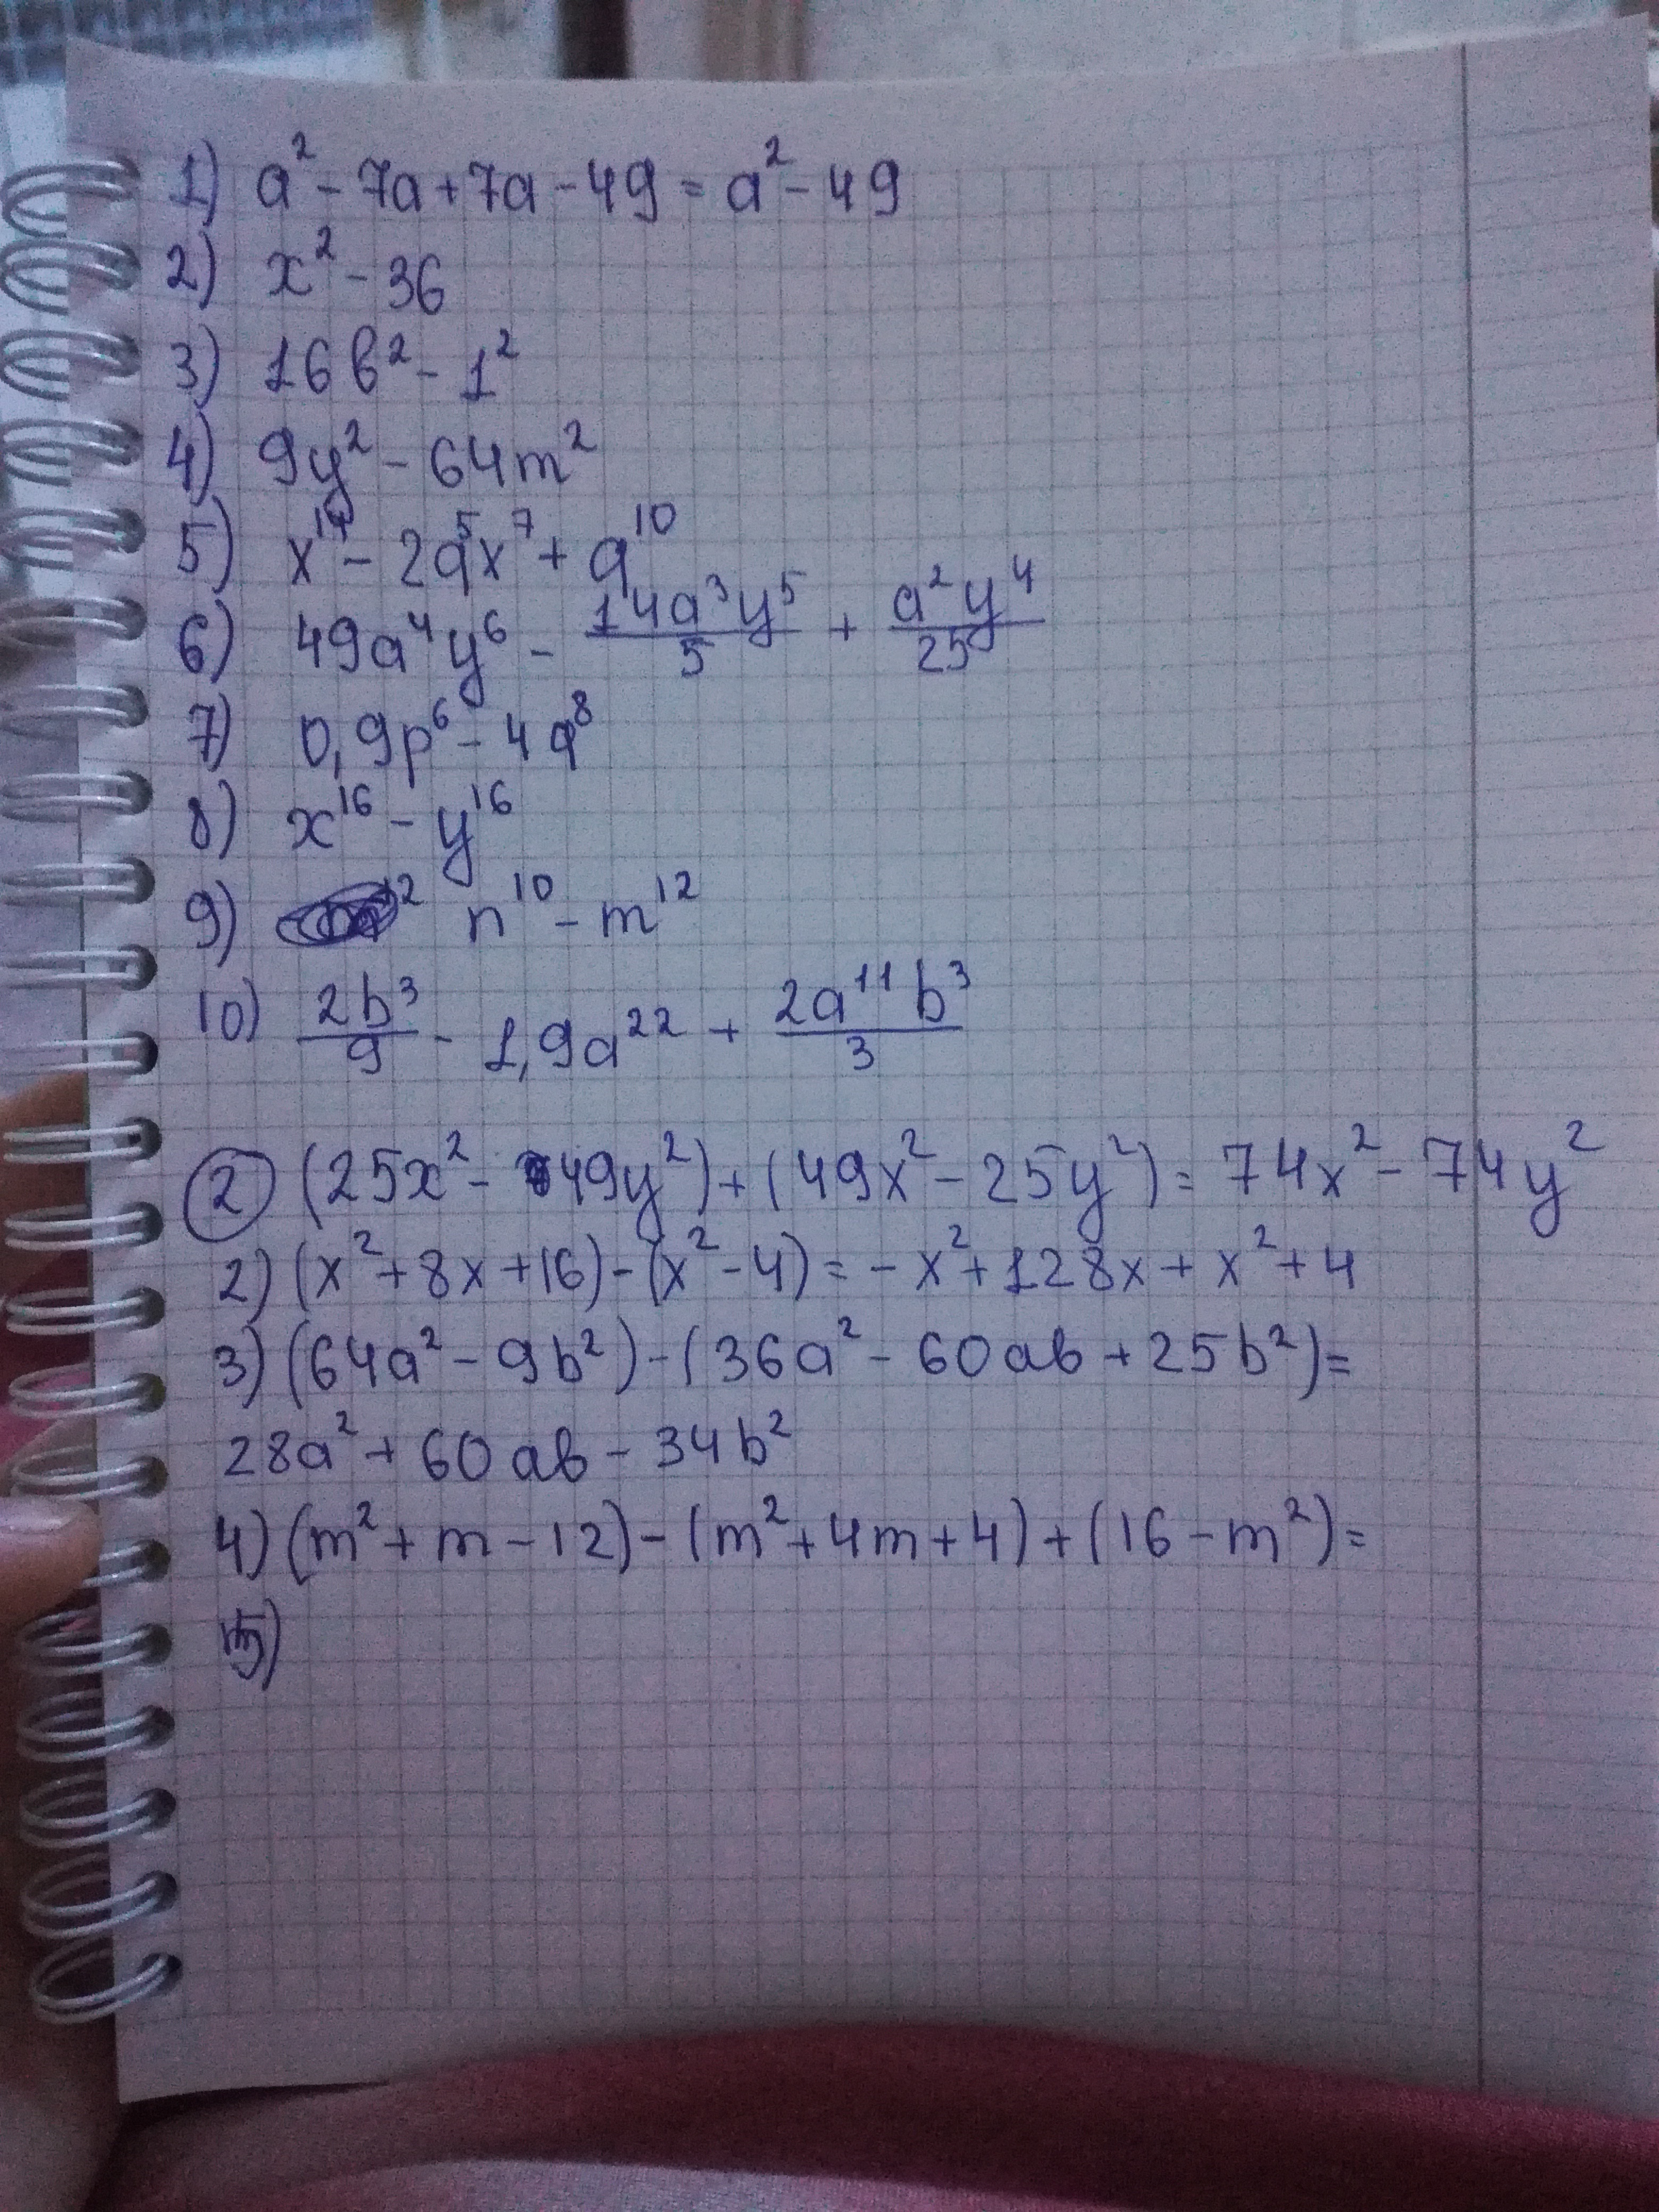 1) a² - 7a + 7a - 49 = a² - 49
2) x² - 36
3) 16в² - 1²
4) 9y² - 64m²
5) x¹⁴ - 2a⁵x⁷ + a¹⁰
6) 49a⁴y⁶ - 14a³y⁵/5 + a²y⁴/25
7) 0,9p⁶ - 4q⁸
8) x¹⁶ - y¹⁶
9) n¹⁰ - m¹²
10) 2b³/9 - 1,9a²² + 2a¹¹b³/3
2 (25x² - 49y²) + (49x² - 25y²) = 74x² - 74y²
2) (x² + 8x + 16) - (x² - 4) = - x² + 128x + x² + 4
3) (64a² - 9b²) - (36a² - 60ав + 25b²) =
28a² + 60ав - 34b²
4) (m² + m - 12) - (m² + 4m + 4) + (16 - m²) =
5)